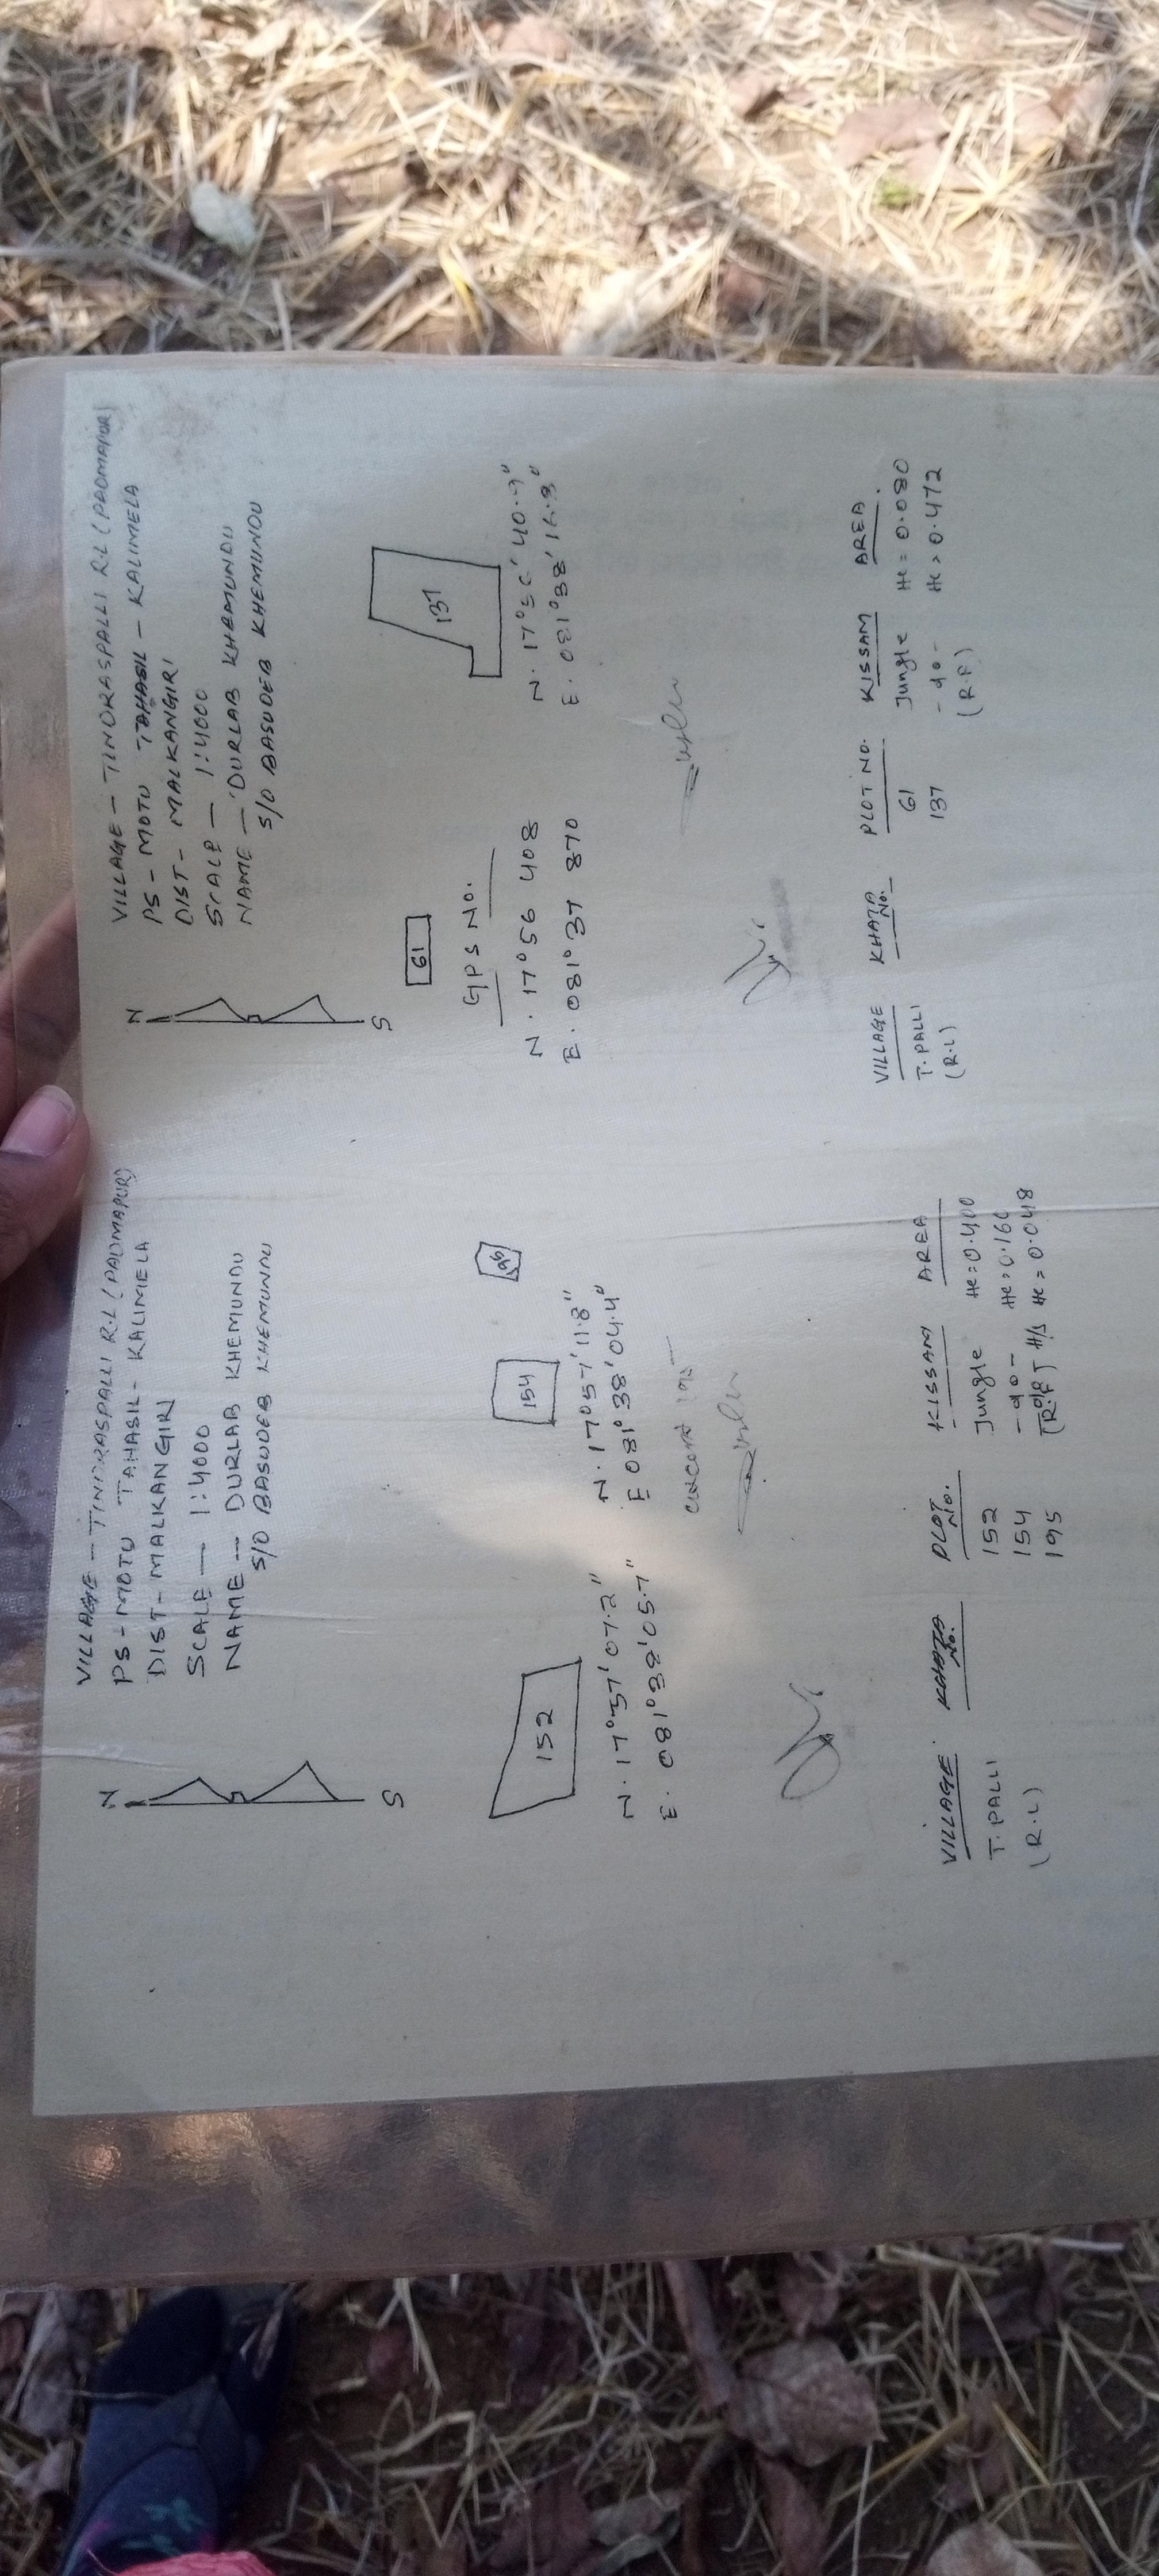 VILLAGE - TINDRASPALLI R.L (PADMAPUR)
PS - MOTU TAHASIL - KALIMELA
DIST - MALKANGIRI
SCALE - 1:4000
NAME - DURLAB KHEMUNDU
S/O BASUDEB KHEMUNDU
N
S
152
154
N. 17°57'07.2"
E. 081°38'05.7"
N. 17°57'11.8"
E 081°38'04.4"
VILLAGE KHATA No. PLOT No. KISSAM AREA
T. PALLI 152 Jungle He = 0.400
(R.L) 154 - do - He = 0.160
195 (R.F) H/S He = 0.048
VILLAGE - TINDRASPALLI R.L (PADMAPUR)
PS - MOTU TAHASIL - KALIMELA
DIST - MALKANGIRI
SCALE - 1:4000
NAME - DURLAB KHEMUNDU
S/O BASUDEB KHEMUNDU
N
S
61
137
GPS No.
N. 17°56 408
E. 081°37 870
N. 17°56'40.9"
E. 081°38'16.8"
VILLAGE KHATA No. PLOT NO. KISSAM AREA.
T. PALLI 61 Jungle He = 0.080
(R.L) 137 - do - He = 0.472
(R.F)